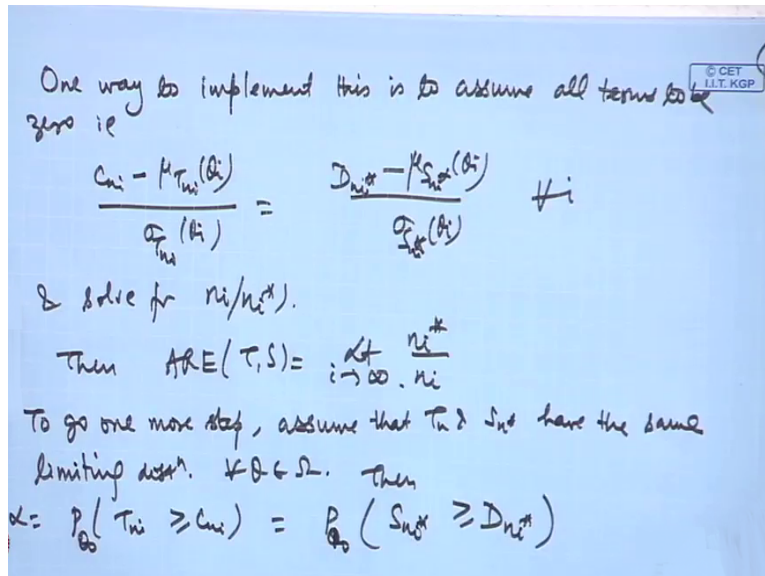 © CET
I.I.T. KGP
One way to implement this is to assume all terms to be
zero ie
(C_{n_i} - μ_{T_{n_i}}(θ_i)) / σ_{T_{n_i}}(θ_i) = (D_{n_i*} - μ_{S_{n_i*}}(θ_i)) / σ_{S_{n_i*}}(θ_i) ∀ i
& solve for n_i/n_i*).
Then ARE(T,S) = Lt_{i→∞} n_i*/n_i
To go one more step, assume that T_n & S_{n*} have the same
limiting distⁿ. ∀ θ ∈ Ω. Then
α = P_{θ_0}(T_{n_i} ≥ C_{n_i}) = P_{θ_0}(S_{n_i*} ≥ D_{n_i*})